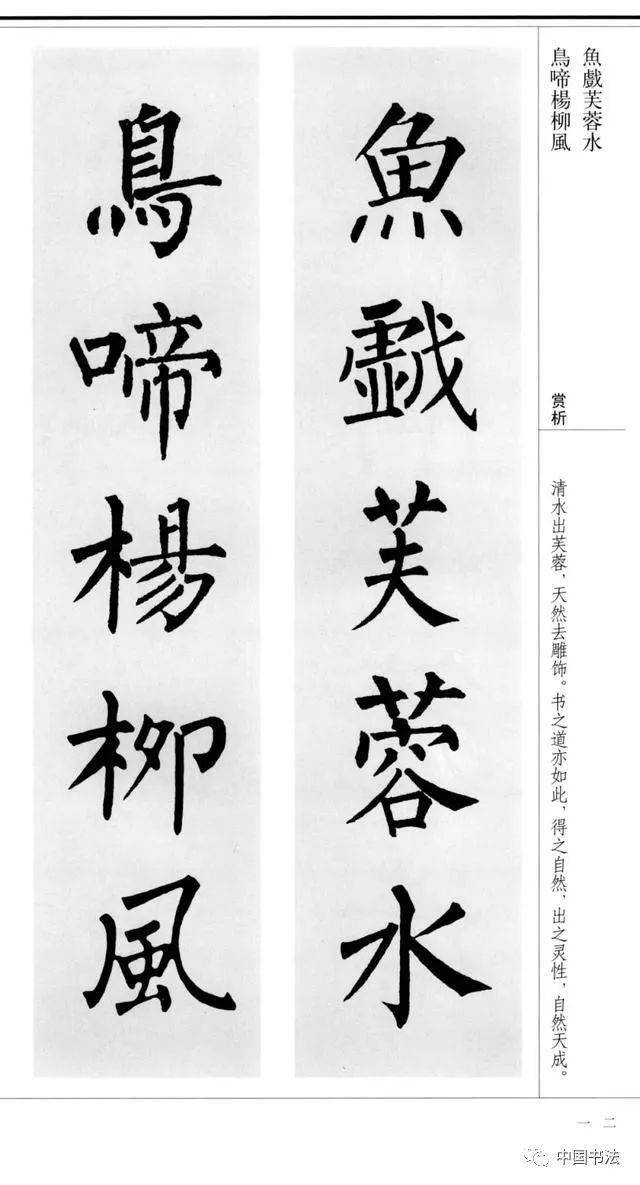 魚戲芙蓉水
鳥啼楊柳風
赏析
清水出芙蓉，天然去雕饰。书之道亦如此，得之自然，出之灵性，自然天成。
魚戲芙蓉水
鳥啼楊柳風
一二
中国书法